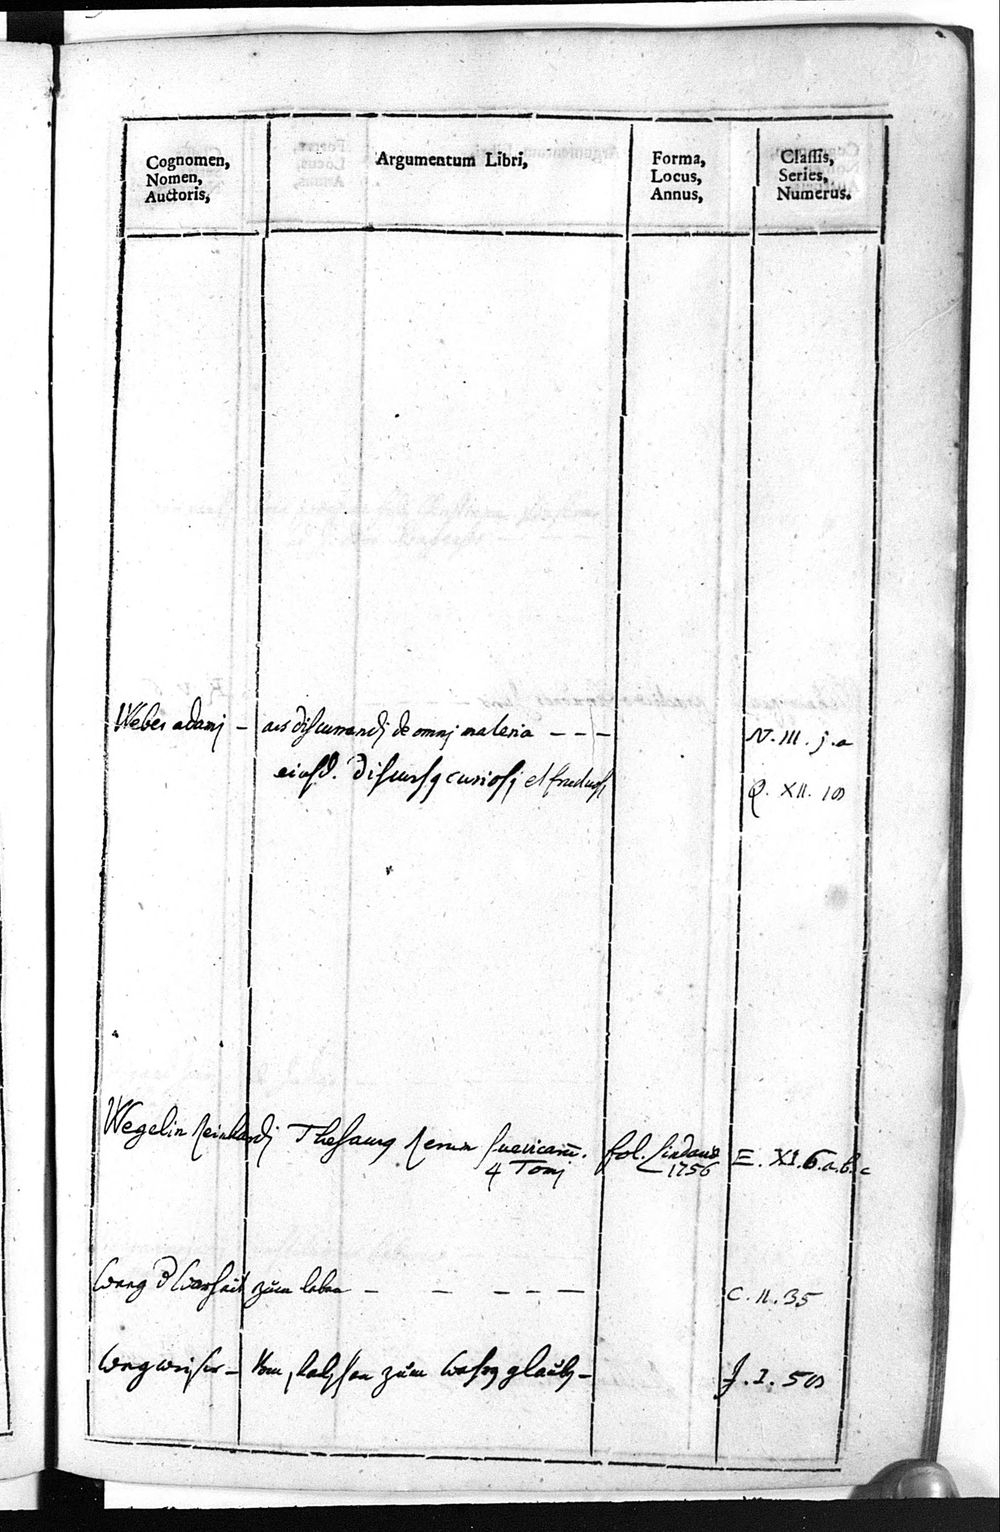 Cognomen,
Nomen,
Auctoris,
Argumentum Libri,
Forma,
Locus,
Annus,
Classis,
Series,
Numerus.
Weber adamj – ars discurrendj de omnj materia – – – N. III. j. a
eiusd. Discursq curiosj et Q. XII. 10
Wegelin Reinhardj Thesaurq rerum suevicarū. fol. Lindaviæ E. XI. 6. a. b. c
4 Tomj 1756
Weeg d Warheit zum leben – – – – – C. II. 35
Wegweiser – Vom falschen zum glaub – J. I. 50